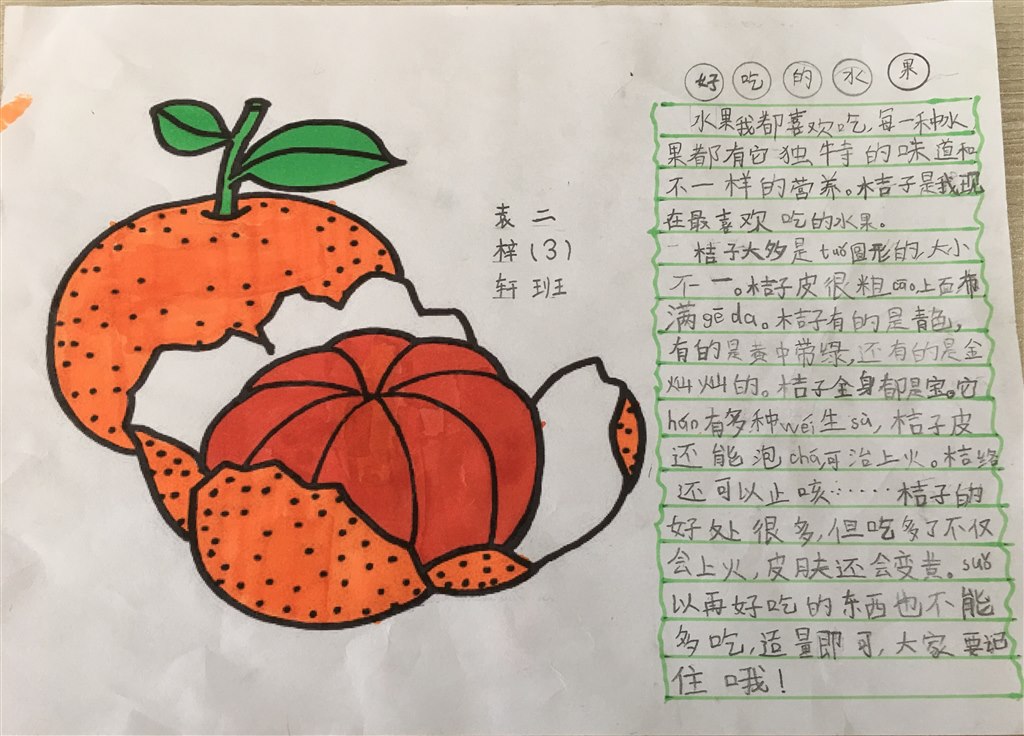 好吃的水果
水果我都喜欢吃,每一种水
果都有它独特的味道和
不一样的营养。桔子是我现
在最喜欢吃的水果。
桔子大多是tuǒ圆形的,大小
不一。桔子皮很粗cāo上面布
满gēda。桔子有的是青色,
有的是黄中带绿,还有的是金
灿灿的。桔子全身都是宝。它
hán有多种wéi生sù,桔子皮
还能泡chá,可治上火。桔络
还可以止咳……桔子的
好处很多,但吃多了不仅
会上火,皮肤还会变黄。suǒ
以再好吃的东西也不能
多吃,适量即可,大家要记
住哦!
袁二
梓(3)
轩班